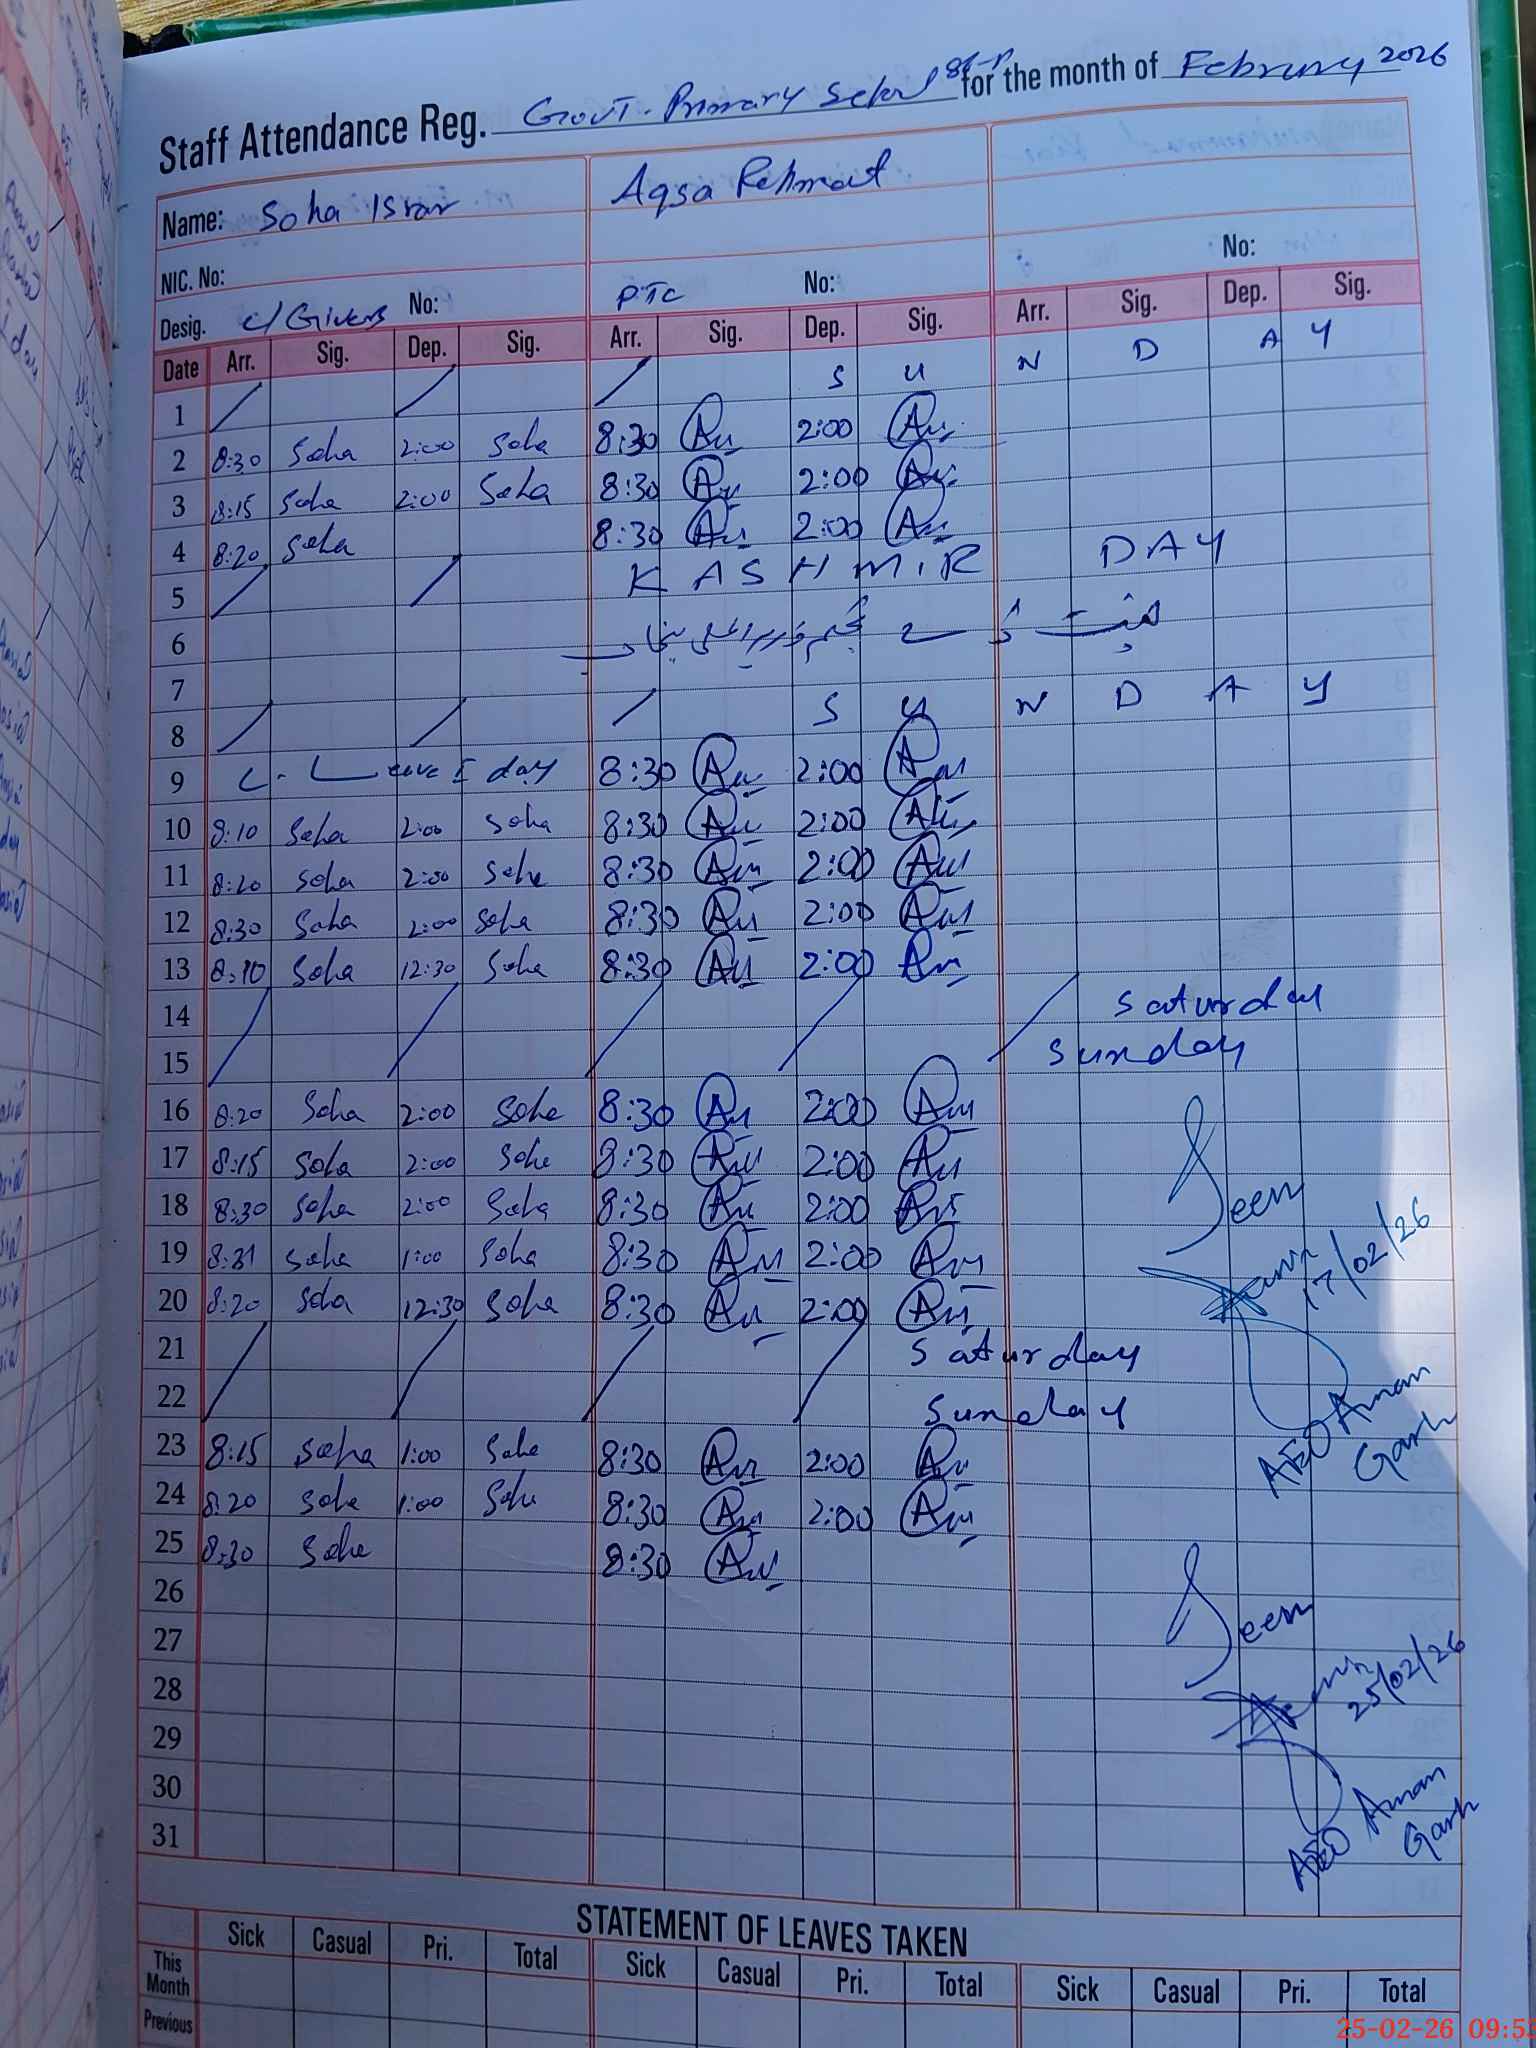 Staff Attendance Reg. GovT. Primary School for the month of February 2026
Name: Soha Israr Aqsa Rehmat
NIC. No:
Desig. No: PTC No: No:
Date Arr. Sig. Dep. Sig. Arr. Sig. Dep. Sig. Arr. Sig. Dep. Sig.
1 S U N D A Y
2 8:30 Soha 2:00 Soha 8:30 2:00
3 8:15 Soha 2:00 Soha 8:30 2:00
4 8:20 Soha 8:30 2:00
5 K A S H M I R D A Y
6
7
8 S U N D A Y
9 C. Leave I day 8:30 2:00
10 8:10 Soha 2:00 Soha 8:30 2:00
11 8:20 Soha 2:00 Soha 8:30 2:00
12 8:30 Soha 2:00 Soha 8:30 2:00
13 8:10 Soha 12:30 Soha 8:30 2:00
14 Saturday
15 Sunday
16 8:20 Soha 2:00 Soha 8:30 2:00
17 8:15 Soha 2:00 Soha 8:30 2:00
18 8:30 Soha 2:00 Soha 8:30 2:00
Seen
17/02/26
19 8:31 Soha 1:00 Soha 8:30 2:00
20 8:20 Soha 12:30 Soha 8:30 2:00
21 Saturday
22 Sunday
AEO Aman
Garh
23 8:15 Soha 1:00 Soha 8:30 2:00
24 8:20 Soha 1:00 Soha 8:30 2:00
25 8:30 Soha 8:30
26
27
Seen
25/02/26
28
29
30
31
AEO Aman
Garh
STATEMENT OF LEAVES TAKEN
This Month Sick Casual Pri. Total Sick Casual Pri. Total Sick Casual Pri. Total
Previous
25-02-26 09:53